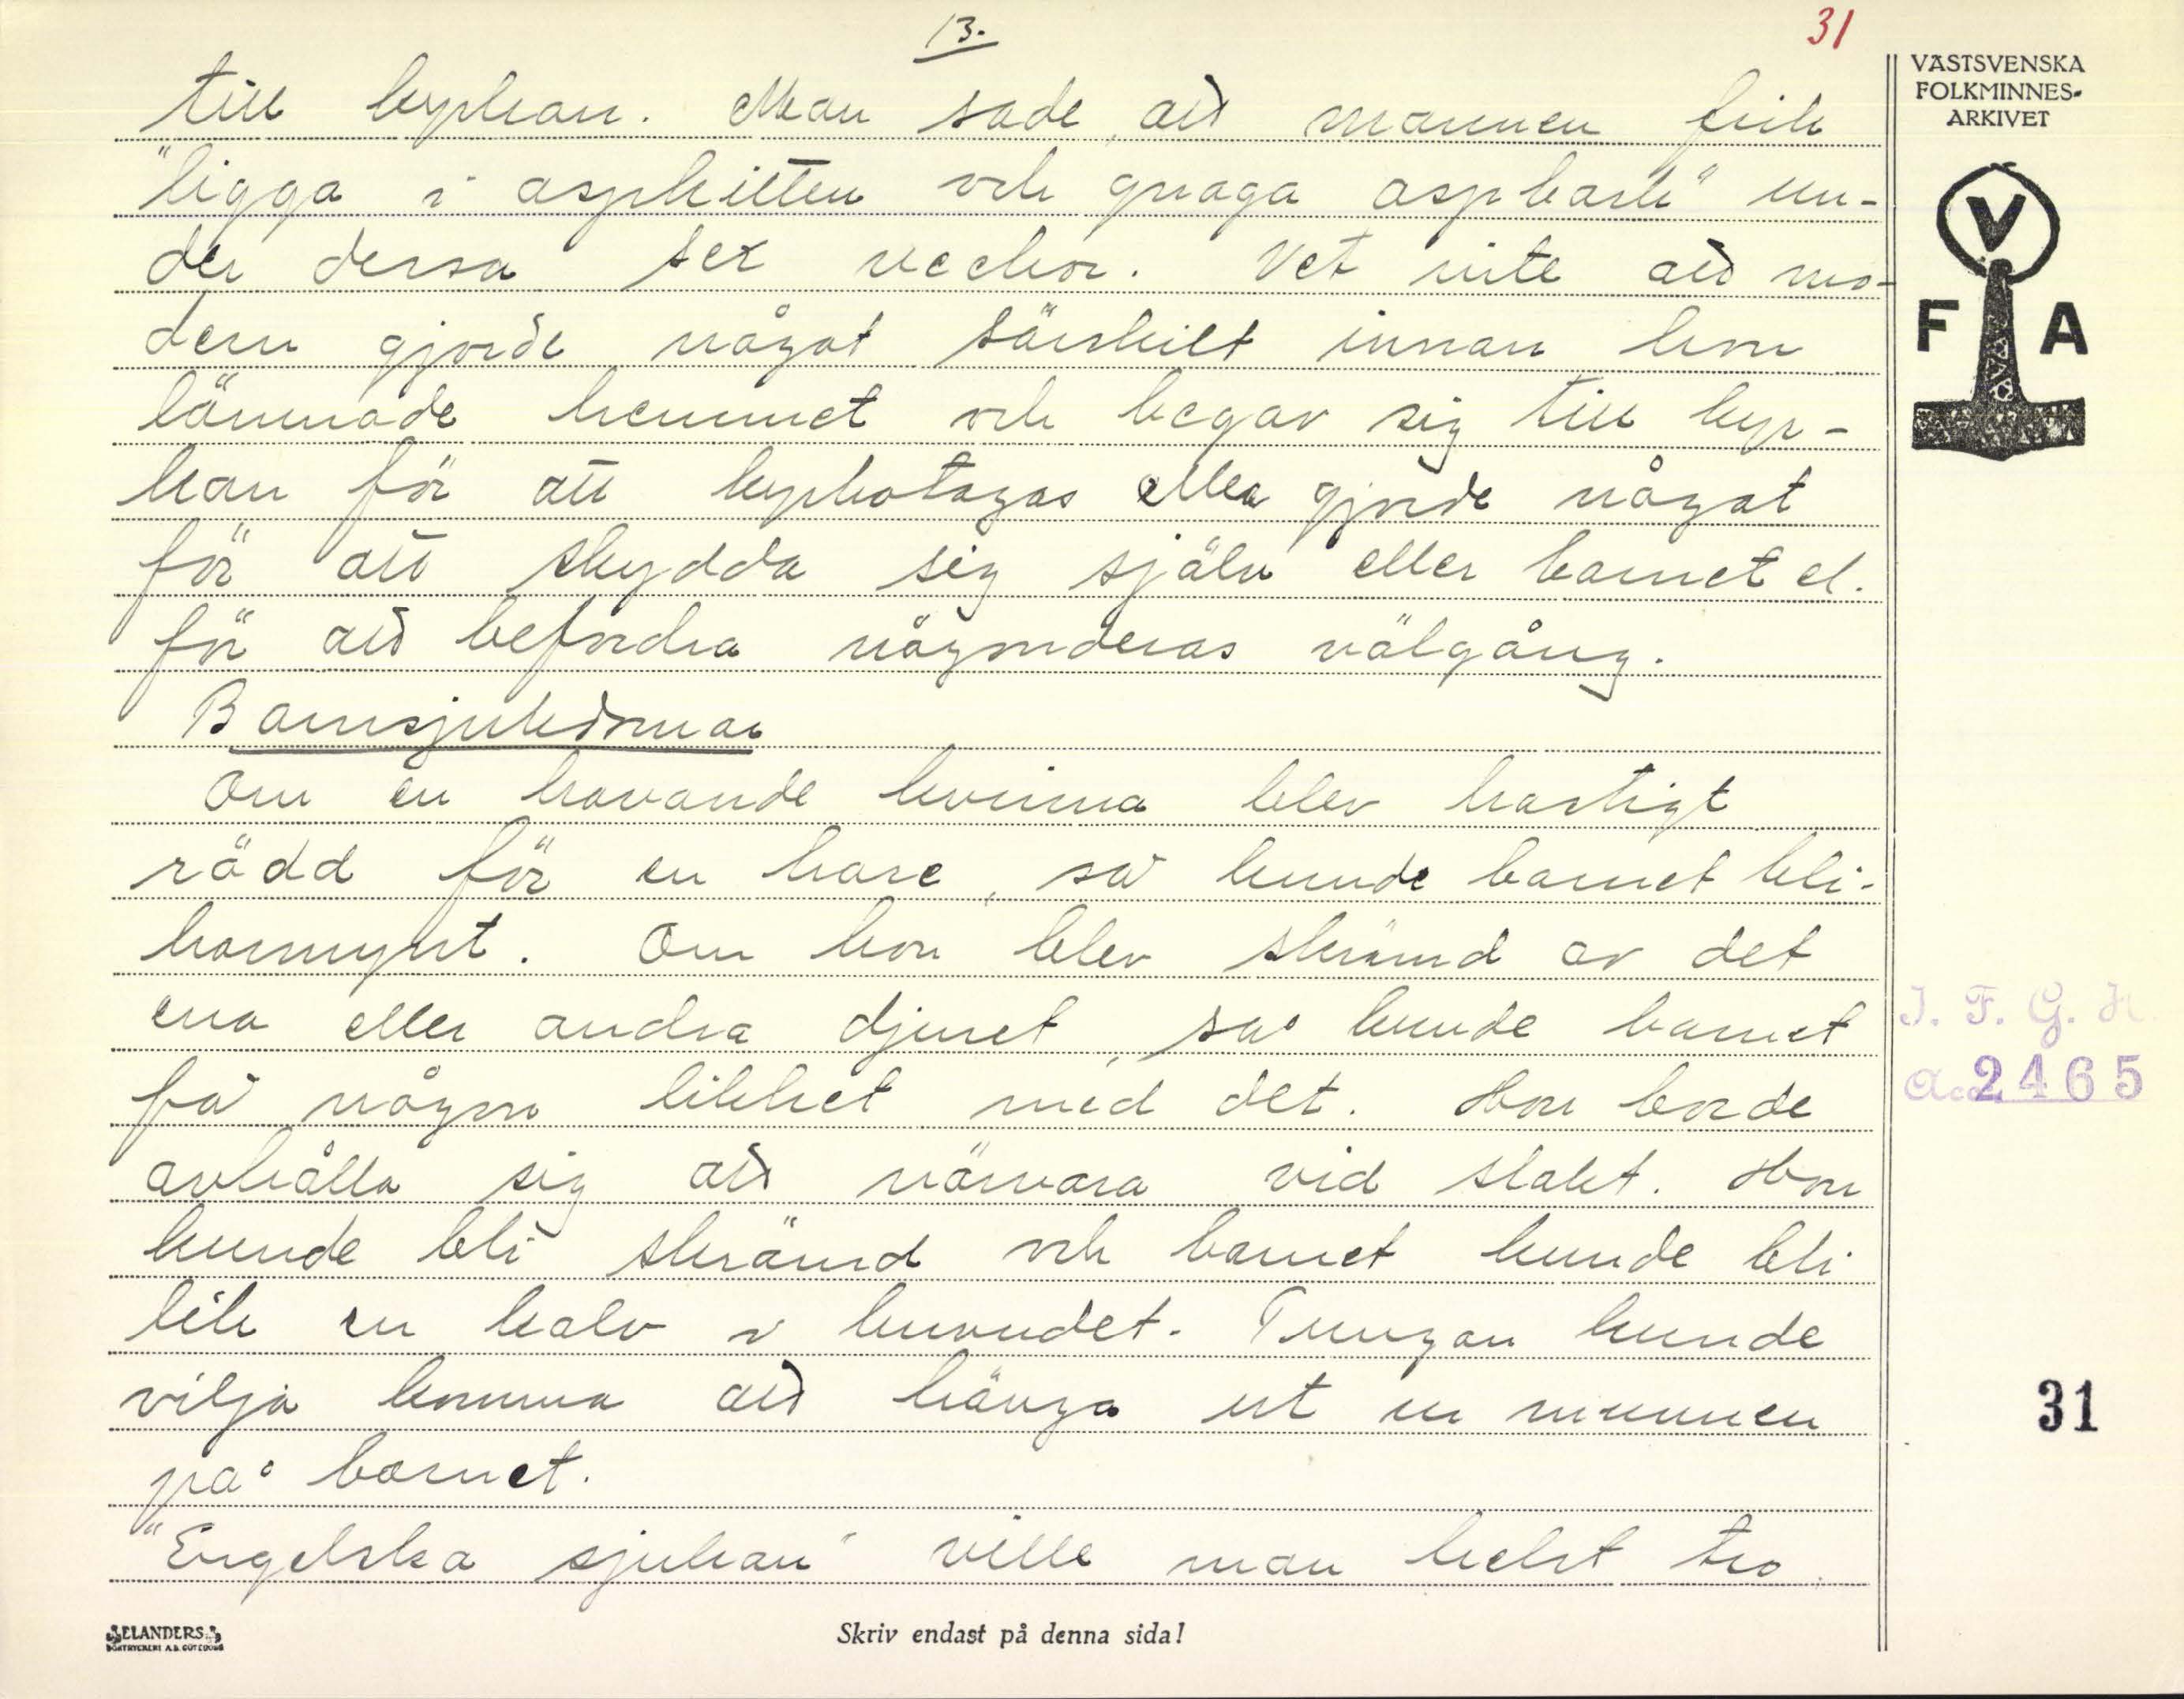 13.
31
till kyrkan. Man sade, att mannen fick
"ligga i aspkitten och gnaga aspbark" un-
der dessa sex veckor. Vet inte att mo-
dern gjorde något särskilt innan hon
lämnade hemmet och begav sig till kyr-
kan för att kyrkotagas eller gjorde något
för att skydda sig själv eller barnet el.
för att befordra någonderas välgång.
Barnsjukdomar
Om en havande kvinna blev hastigt
rädd för en hare, så kunde barnet bli
harmynt. Om hon blev skrämd av det
ena eller andra djuret, så kunde barnet
få någon likhet med det. Hon borde
avhålla sig att närvara vid slakt. Hon
kunde bli skrämd och barnet kunde bli
lik en kalv i huvudet. Tungan kunde
vilja komma att hänga ut ur munnen
på barnet.
"Engelska sjukan" ville man helst tro
VÄSTSVENSKA
FOLKMINNES-
ARKIVET
V
F A
I. F. G. H.
Acc. 2465
31
ELANDERS
BOKTRYCKERI A.B. GÖTEBORG
Skriv endast på denna sida!